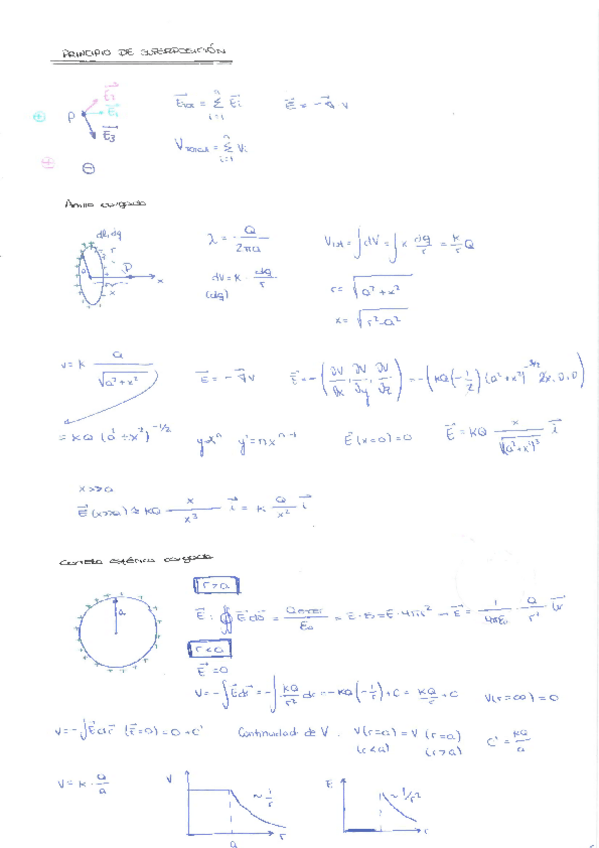 PRINCIPIO DE SUPERPOSICIÓN
P E₃
E⃗tot = Σ(i=1, n) E⃗i   E⃗ = -∇⃗ V
Vtotal = Σ(i=1, n) Vi
Anillo cargado
dl, dq   r   a   P   x
λ = Q / 2πa   Vtot = ∫dV = ∫ k dq/r = k/r Q
dV = k · dq/r   r = √(a² + x²)
(dq)   x = √(r² - a²)
V = k Q/√(a² + x²)   E⃗ = -∇⃗V   E⃗ = -(∂V/∂x, ∂V/∂y, ∂V/∂z) = -(kQ(-1/2)(a² + x²)^(-3/2) 2x, 0, 0)
= kQ (a² + x²)^(-1/2)   y=xⁿ   y' = nxⁿ⁻¹   E⃗(x=0) = 0   E⃗ = kQ x/√(a² + x²)³ i⃗
x>>a
E⃗(x>>a) ≈ kQ x/x³ i⃗ = k Q/x² i⃗
Corteza esférica cargada
a
r > a
E⃗: ∮E⃗ds⃗ = Qinter/ε₀ = E·S = E·4πr² → E⃗ = 1/4πε₀ · Q/r² u⃗r
r < a
E⃗ = 0
V = -∫E⃗dr⃗ = -∫ kQ/r² dr = -kQ(-1/r) + C = kQ/r + C   V(r=∞) = 0
V = -∫E⃗dr⃗ (E⃗=0) = 0 + C'   Continuidad de V   V(r=a) = V(r=a)   C' = kQ/a
(r<a)   (r>a)
V = k · Q/a
V   ~ 1/r   a   r
E   ~ 1/r²   r